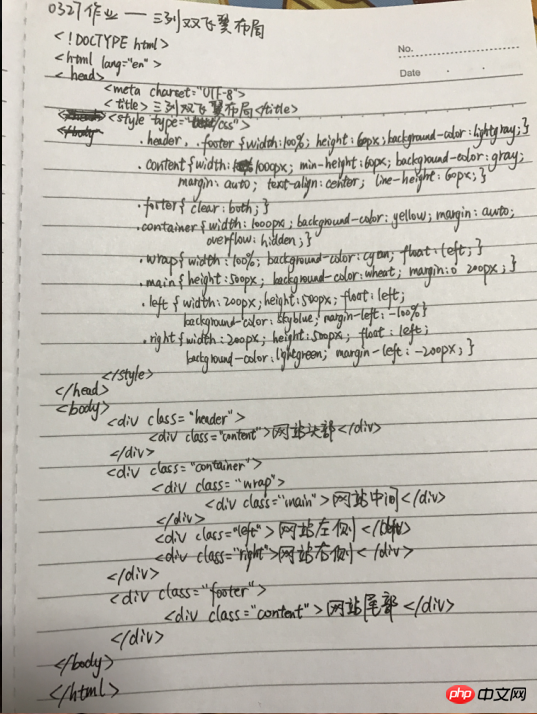 0327作业 — 三列双飞翼布局
No.
Date
<!DOCTYPE html>
<html lang="en">
<head>
<meta chartet="UTF-8">
<title>三列双飞翼布局</title>
<style type="text/css">
.header, .footer{width:100%; height:60px; background-color:lightgray;}
.content{width: 1000px; min-height:60px; background-color:gray;
margin: auto; text-align:center; line-height:60px;}
.footer{clear:both;}
.container{width:1000px; background-color: yellow; margin: auto;
overflow: hidden;}
.wrap{width:100%; background-color: cyan; float: left;}
.main{height:500px; background-color:wheat; margin:0 200px;}
.left{width:200px; height:500px; float:left;
background-color: skyblue; margin-left: -100%}
.right{width:200px; height:500px; float:left;
background-color:lightgreen; margin-left: -200px;}
</style>
</head>
<body>
<div class="header">
<div class="content">网站头部</div>
</div>
<div class="container">
<div class="wrap">
<div class="main">网站中间</div>
</div>
<div class="left">网站左侧</div>
<div class="right">网站右侧</div>
</div>
<div class="footer">
<div class="content">网站尾部</div>
</div>
</body>
</html>
php 中文网